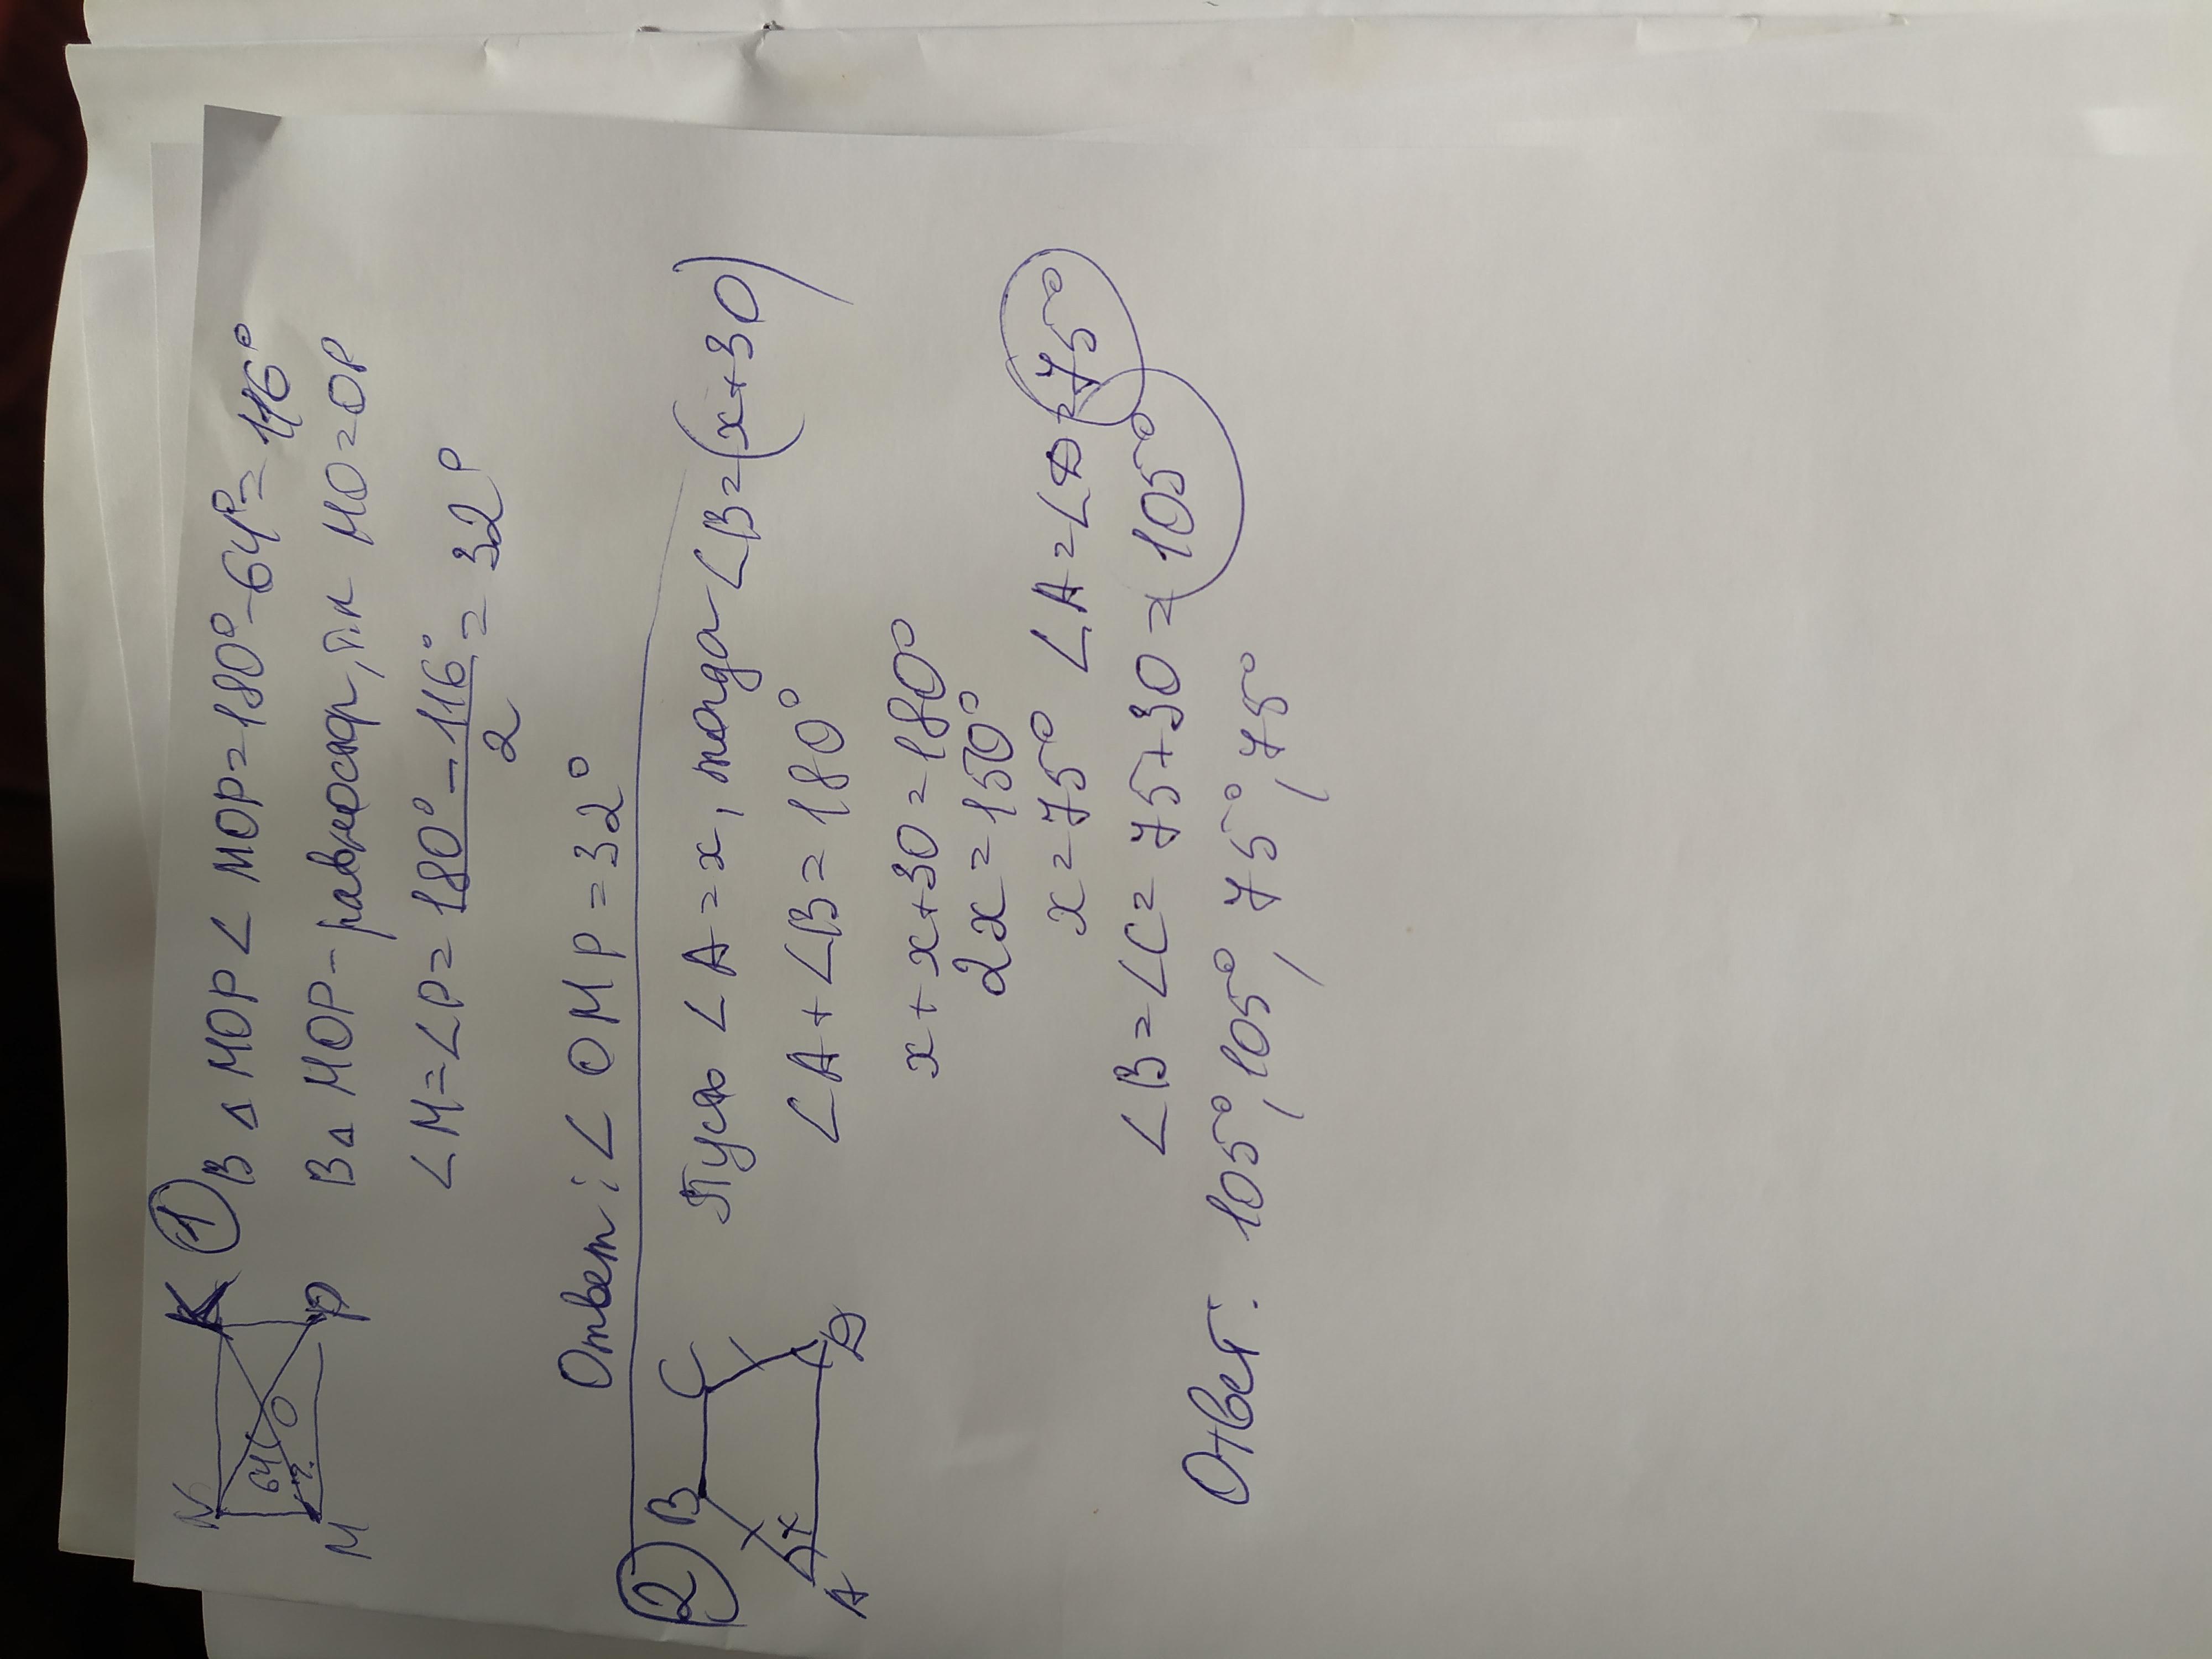 N K
64
O
?
M P
① В △ MOP ∠ MOP = 180° - 64° = 116°
В △ MOP - равнобедр, т.к MO = OP
∠M = ∠P = 180° - 116° / 2 = 32°
Ответ: ∠ OMP = 32°
② B C
x
A D
Пусть ∠A = x, тогда ∠B = (x + 30)
∠A + ∠B = 180°
x + x + 30 = 180°
2x = 150°
x = 75° ∠A = ∠D = 75°
∠B = ∠C = 75 + 30 = 105°
Ответ: 105°, 105°, 75°, 75°